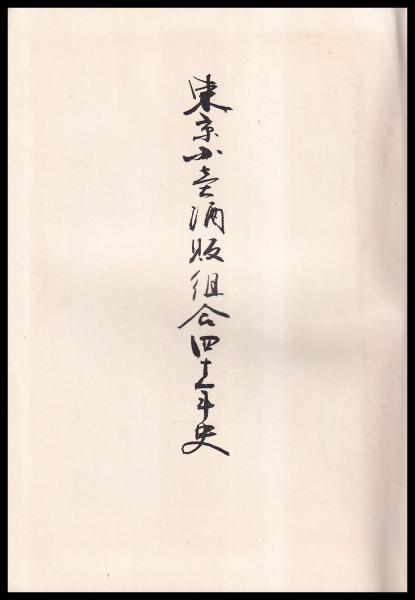 東京小売酒販組合四十年史